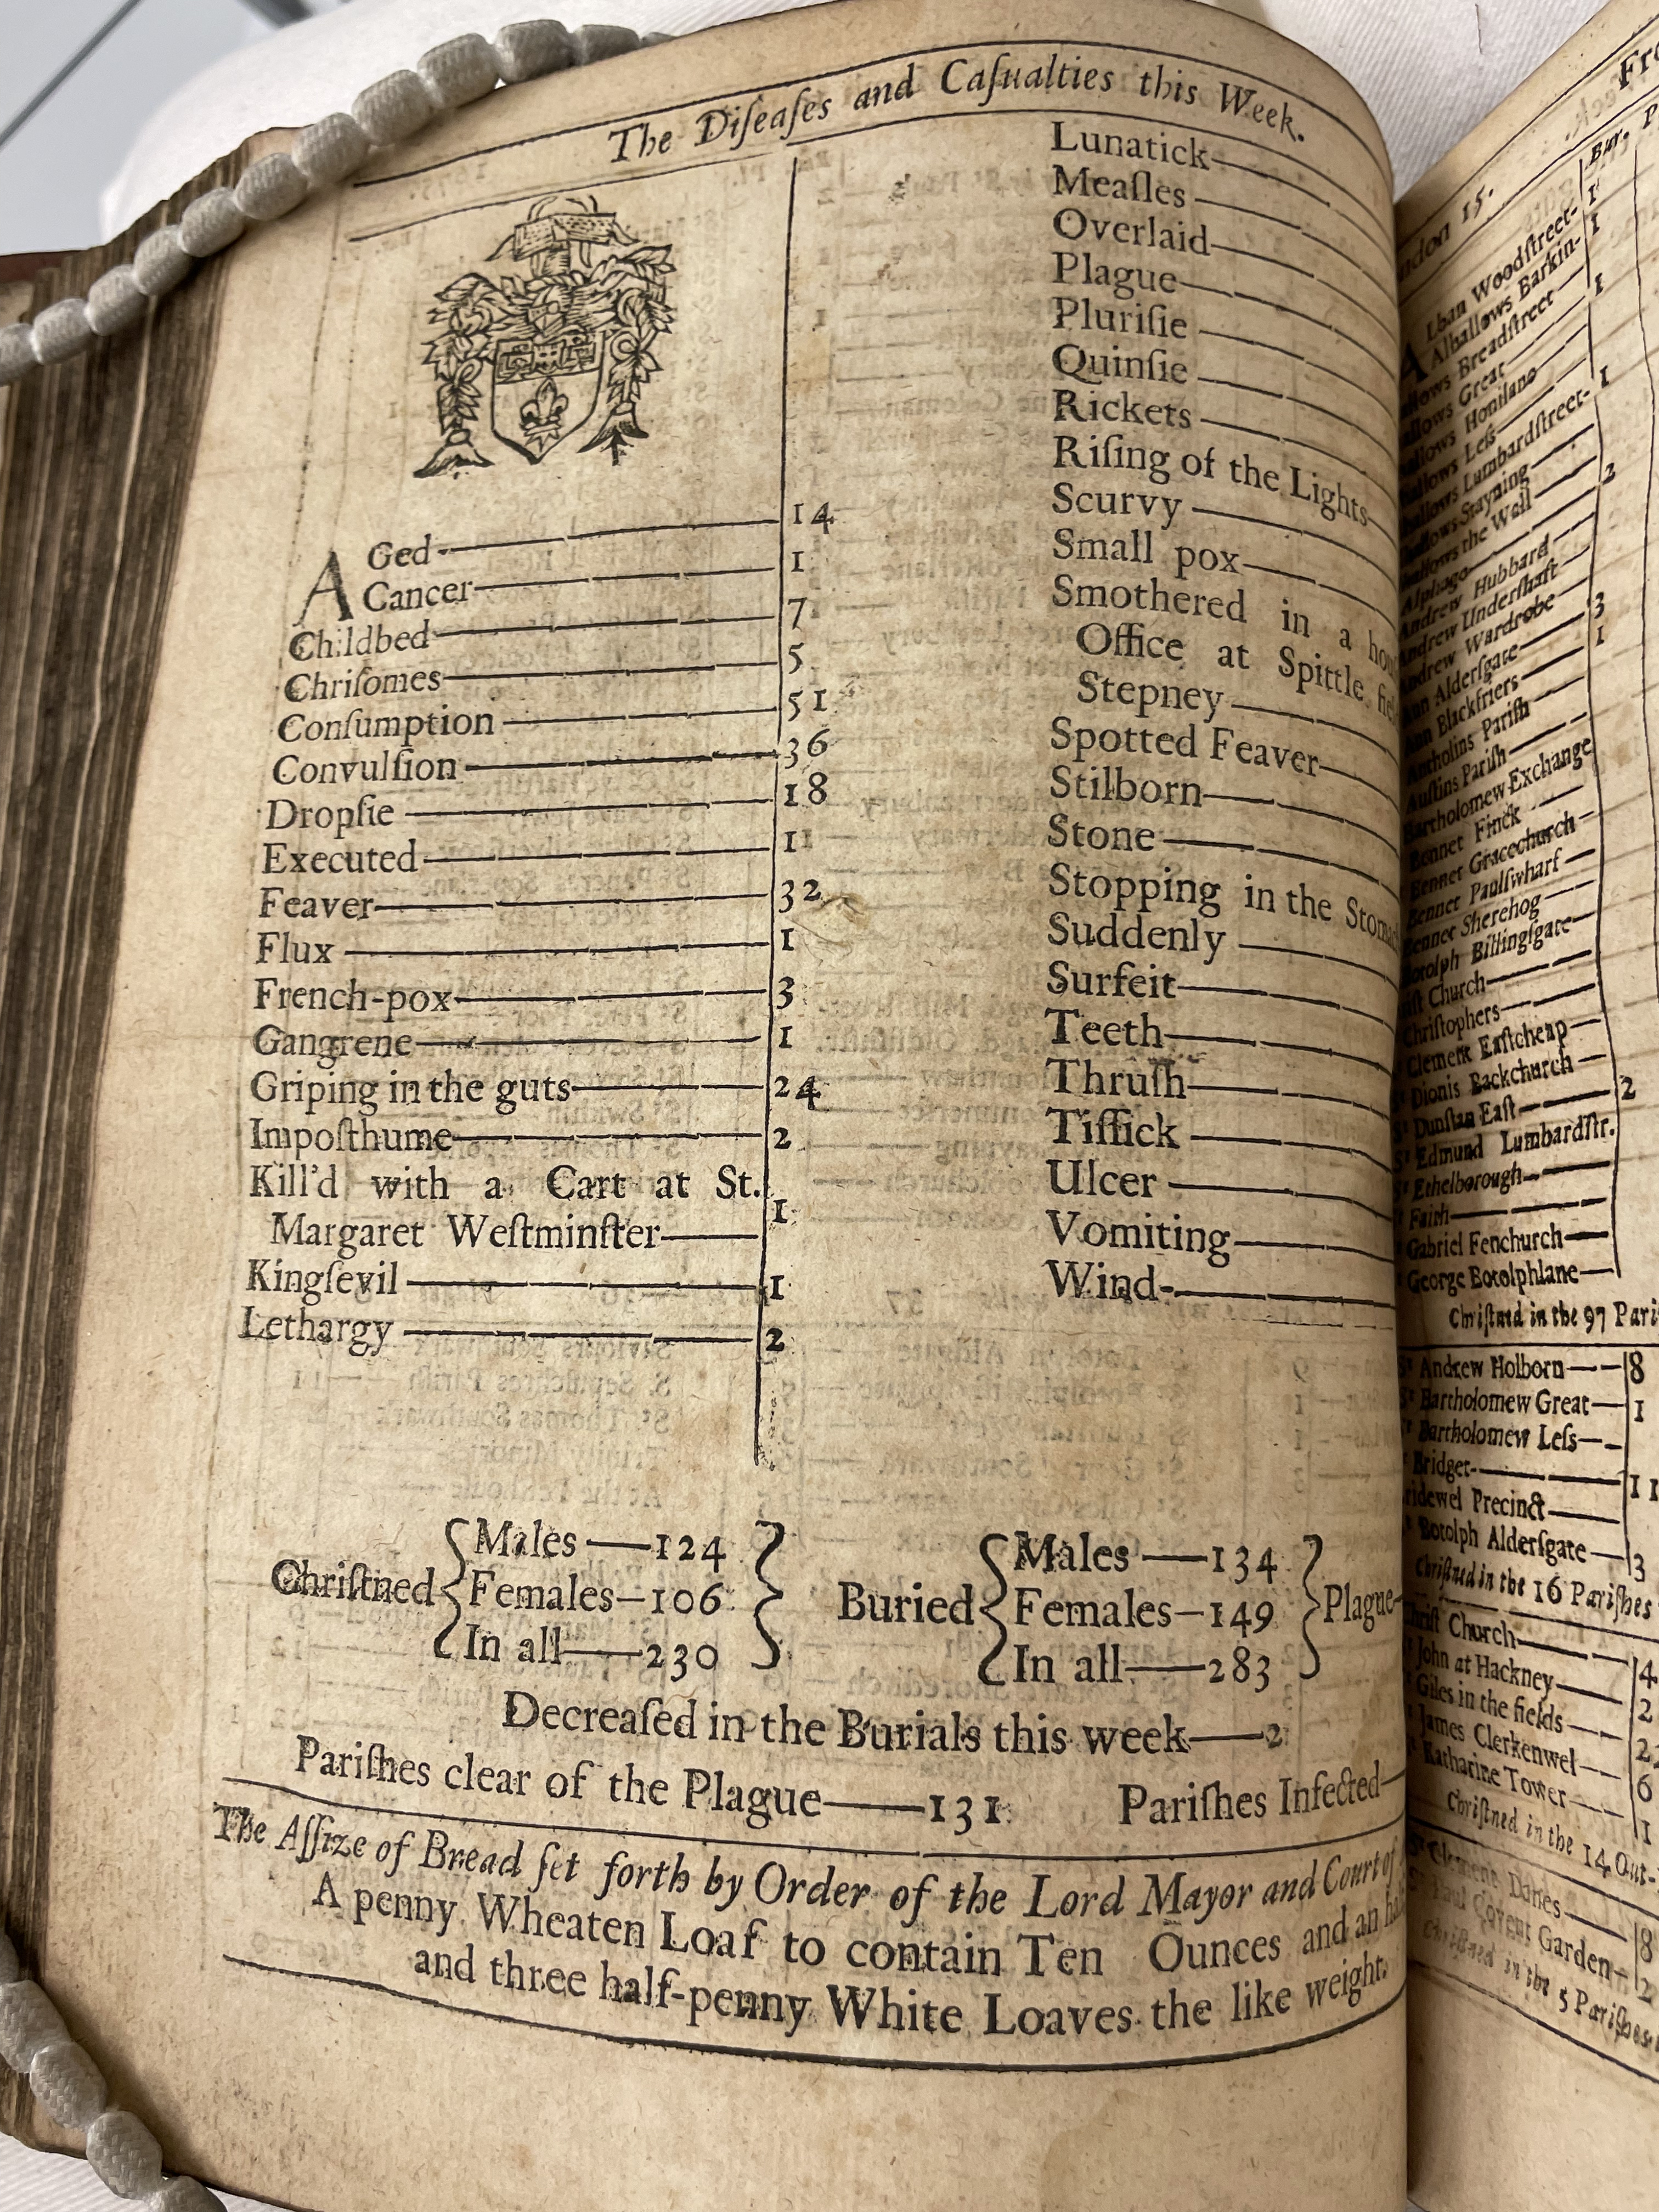 The Diſeaſes and Caſualties this Week.
AGed 14
Cancer 1
Childbed 7
Chriſomes 5
Conſumption 51
Convulſion 36
Dropſie 18
Executed 11
Feaver 32
Flux 1
French-pox 3
Gangrene 1
Griping in the guts 24
Impoſthume 2
Kill'd with a Cart at St.
Margaret Weſtminſter 1
Kingſevil 1
Lethargy 2
Lunatick
Meaſles
Overlaid
Plague
Pluriſie
Quinſie
Rickets
Riſing of the Lights
Scurvy
Small pox
Smothered in a
Office at Spittle
Stepney
Spotted Feaver
Stilborn
Stone
Stopping in the
Suddenly
Surfeit
Teeth
Thruſh
Tiſſick
Ulcer
Vomiting
Wind
Chriſtned
Males 124
Females 106
In all 230
Buried
Males 134
Females 149
In all 283
Plague
Decreaſed in the Burials this week 2
Pariſhes clear of the Plague 131 Pariſhes Infected
The Aſſize of Bread ſet forth by Order of the Lord Mayor and Court of
A penny Wheaten Loaf to contain Ten Ounces and an
and three half-penny White Loaves the like weight.
15.
Bur.
Lban Woodſtreet 1
Alhallows Barkin 1
Breadſtreet
Great 1
Honilane
Leſs
Lumbardſtreet 1
Stayning
the Wall 2
Alphage
Andrew Hubbard
Andrew Underſhaft
Andrew Wardrobe 3
Ann Alderſgate 1
Ann Blackfriers
Antholins Pariſh
Auſtins Pariſh
Bartholomew Exchange
Bennet Finck
Bennet Gracechurch
Bennet Paulſwharf
Bennet Sherehog
Botolph Billingſgate
Church
Chriſtophers
Clement Eaſtcheap
Dionis Backchurch
Dunſtan Eaſt 2
Edmund Lumbardſtr.
Ethelborough
Faith
Gabriel Fenchurch
George Botolphlane
Chriſtned in the 97
St Andrew Holborn 8
St Bartholomew Great 1
Bartholomew Leſs
Bridget 11
Precinct
Botolph Alderſgate 3
Chriſtned in the 16 Pariſhes
Church 4
John at Hackney 2
Giles in the fields
James Clerkenwel 6
Katharine Tower 1
Chriſtned in the 14
Clement Danes 8
Paul Covent Garden 2
Chriſtned in the 5